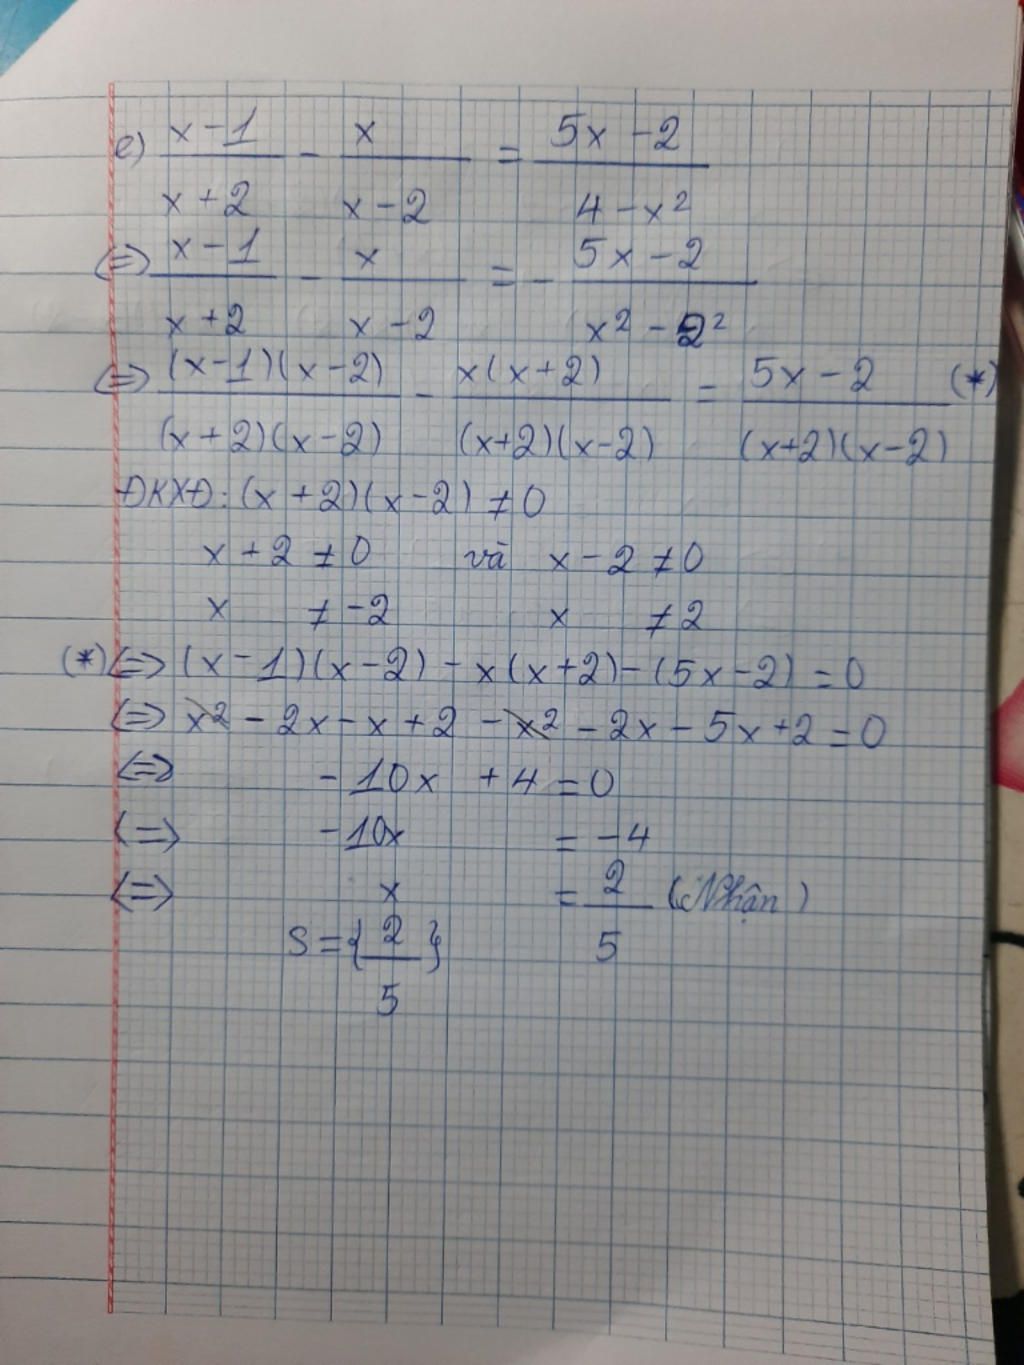 e) (x - 1)/(x + 2) - x/(x - 2) = (5x - 2)/(4 - x²)
<=> (x - 1)/(x + 2) - x/(x - 2) = - (5x - 2)/(x² - 2²)
<=> ((x-1)(x-2))/((x+2)(x-2)) - (x(x+2))/((x+2)(x-2)) = (5x - 2)/((x+2)(x-2)) (*)
ĐKXĐ: (x + 2)(x - 2) ≠ 0
x + 2 ≠ 0 và x - 2 ≠ 0
x ≠ -2 x ≠ 2
(*) <=> (x - 1)(x - 2) - x(x + 2) - (5x - 2) = 0
<=> x² - 2x - x + 2 - x² - 2x - 5x + 2 = 0
<=> - 10x + 4 = 0
<=> - 10x = - 4
<=> x = 2/5 (Nhận)
S = {2/5}